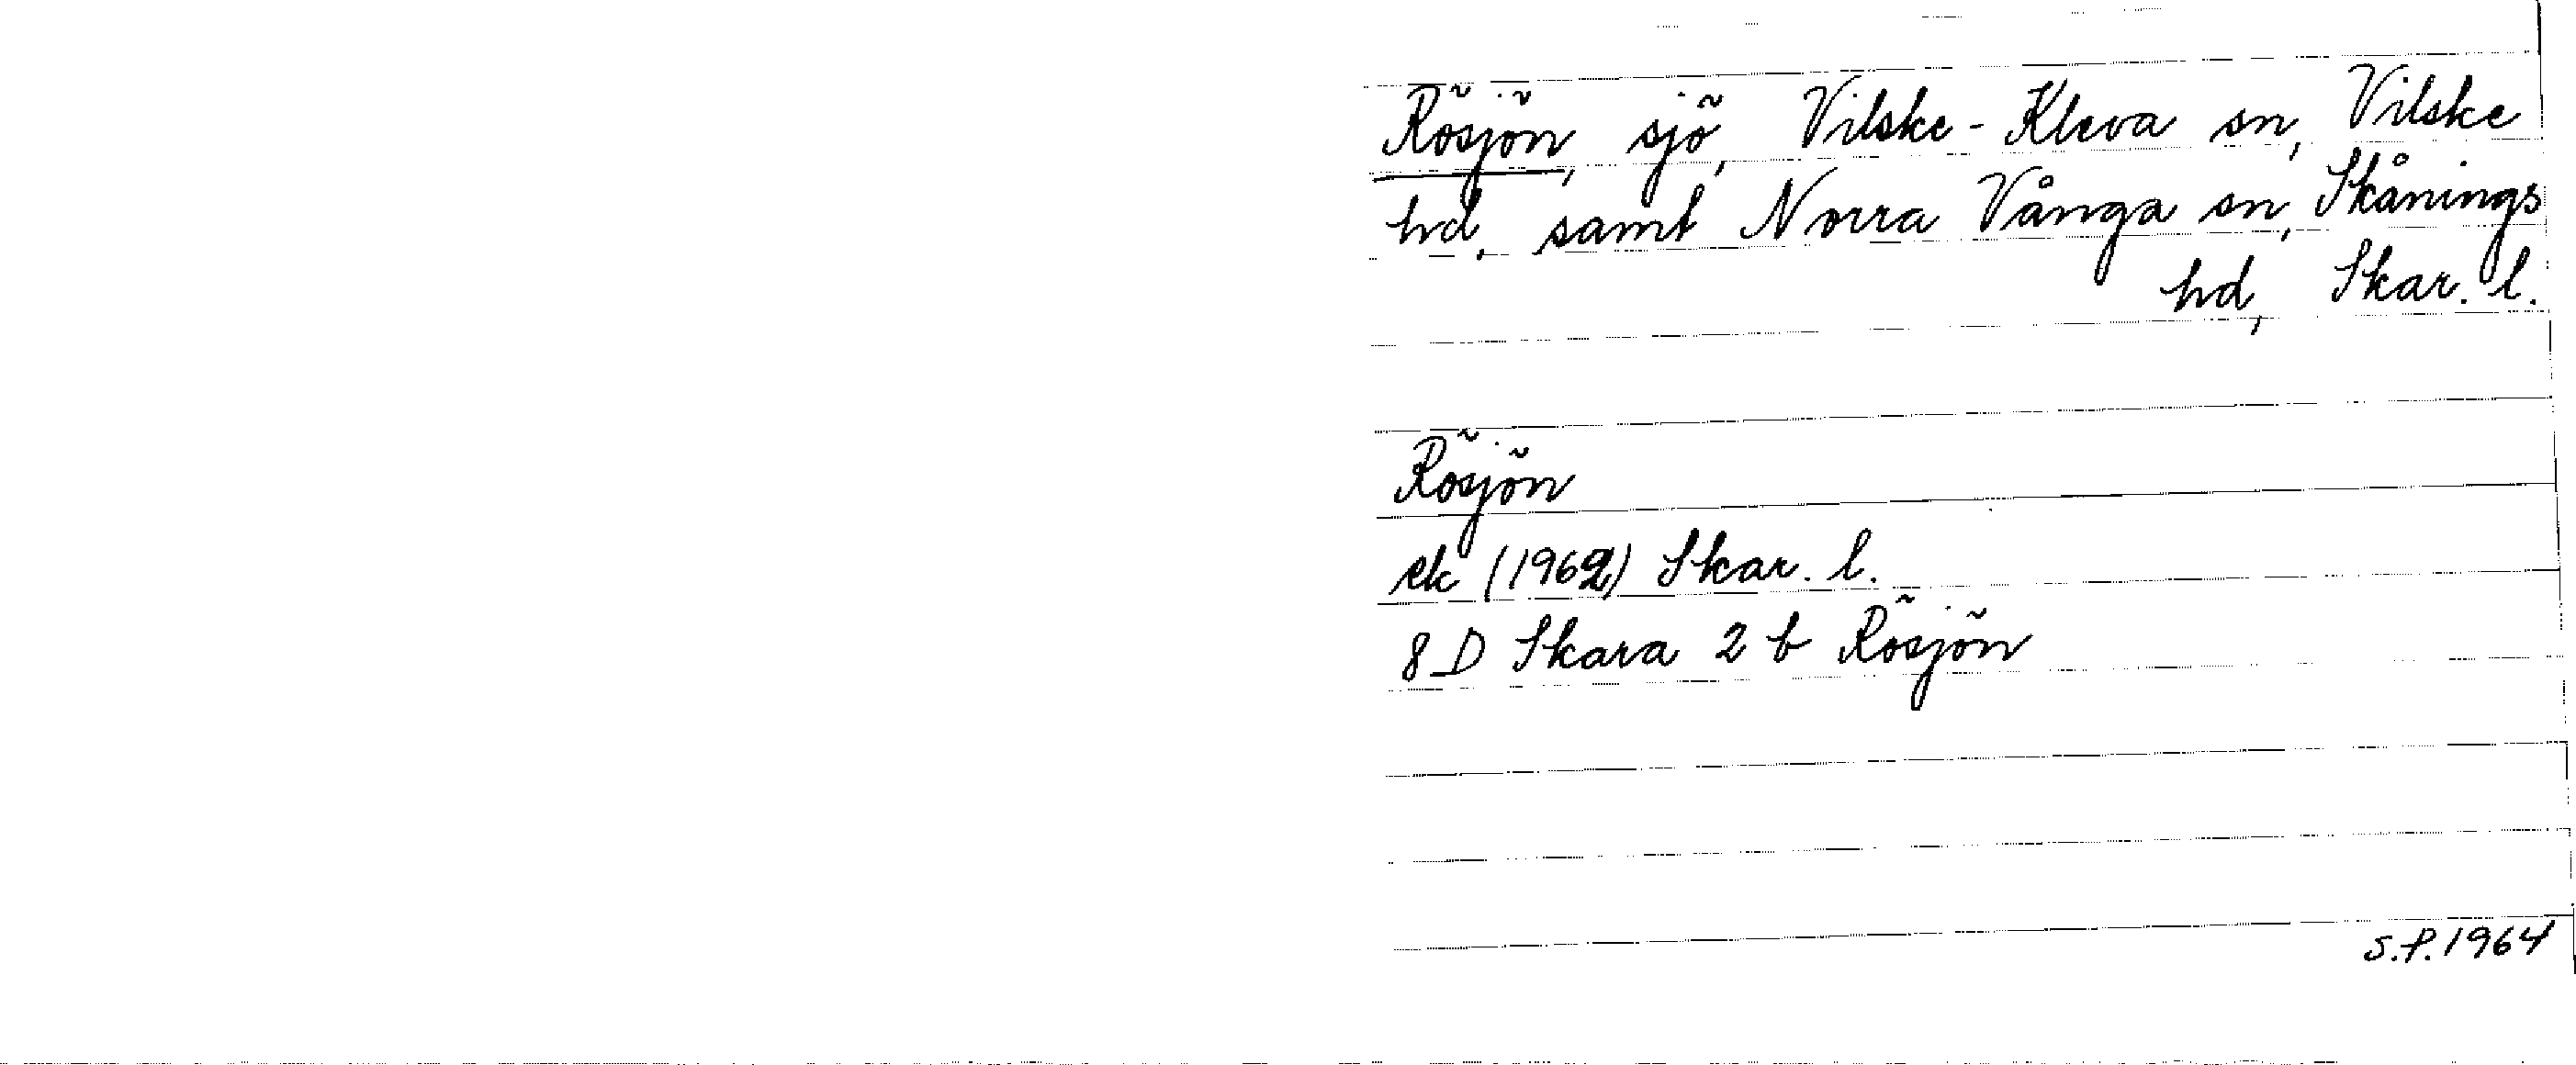 Rösjön, sjö, Vilske-Kleva sn, Vilske
hd, samt Norra Vånga sn, Skånings
hd, Skar. l.
Rösjön
ek (1962) Skar. l.
8 D Skara 2 b Rösjön
S.P. 1964